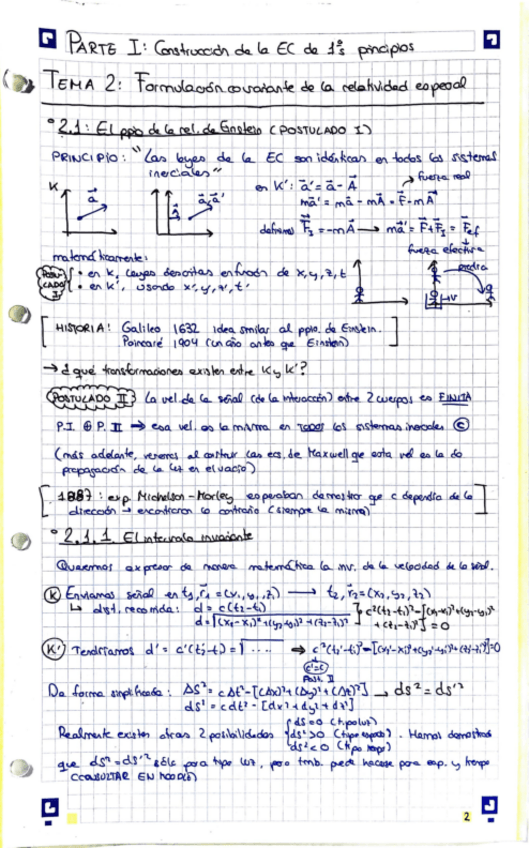 PARTE I: Construcción de la EC de 1ºs principios
TEMA 2: Formulación covariante de la relatividad especial
° 2.1: El ppio de la rel. de Einstein (POSTULADO I)
PRINCIPIO: "Las leyes de la EC son idénticas en todos los sistemas
inerciales"
fuerza real
K
en K': a⃗' = a⃗ - A⃗
ma⃗' = ma⃗ - mA⃗ = F⃗ - mA⃗
definimos F⃗_I = -mA⃗ → ma⃗' = F⃗ + F⃗_I = F⃗_ef
fuerza efectiva
matemáticamente:
POSTULADO I
• en K, leyes descritas en función de x, y, z, t
• en K', usando x', y', z', t'
piedra
[HISTORIA: Galileo 1632 idea similar al ppio. de Einstein.
Poincaré 1904 (un año antes que Einstein)]
→ ¿qué transformaciones existen entre K y K'?
POSTULADO II La vel. de la señal (de la interacción) entre 2 cuerpos es FINITA
P.I ⊕ P.II → esa vel. es la misma en TODOS los sistemas inerciales ⓒ
(más adelante, veremos al construir las ecs. de Maxwell que esta vel es la de
propagación de la luz en el vacío)
[1887: exp Michelson-Morley esperaban demostrar que c dependía de la
dirección → encontraron lo contrario (siempre la misma)]
° 2.1.1. El intervalo invariante
Queremos expresar de manera matemática la inv. de la velocidad de la señal.
(K) Enviamos señal en t₁, r⃗₁ = (x₁, y₁, z₁) → t₂, r⃗₂ = (x₂, y₂, z₂)
↳ dist. recorrida: d = c(t₂-t₁)
d = √((x₂-x₁)²+(y₂-y₁)²+(z₂-z₁)²)
c²(t₂-t₁)²-[(x₂-x₁)²+(y₂-y₁)²
+(z₂-z₁)²] = 0
(K') Tendríamos d' = c'(t₂'-t₁') = √.... ⇒ c²(t₂'-t₁')²-[(x₂'-x₁')²+(y₂'-y₁')²+(z₂'-z₁')²]=0
c'=c
Post. II
De forma simplificada: ΔS² = cΔt² - [(Δx)²+(Δy)²+(Δz)²] → ds² = ds'²
ds² = cdt² - [dx²+dy²+dz²]
Realmente existen otras 2 posibilidades
ds=0 (tipo luz)
ds²>0 (tipo espacio)
ds²<0 (tipo tiempo)
. Hemos demostrado
que ds²=ds'² sólo para tipo luz, pero tmb. puede hacerse para esp. y tiempo
(CONSULTAR EN MOODLE)
2